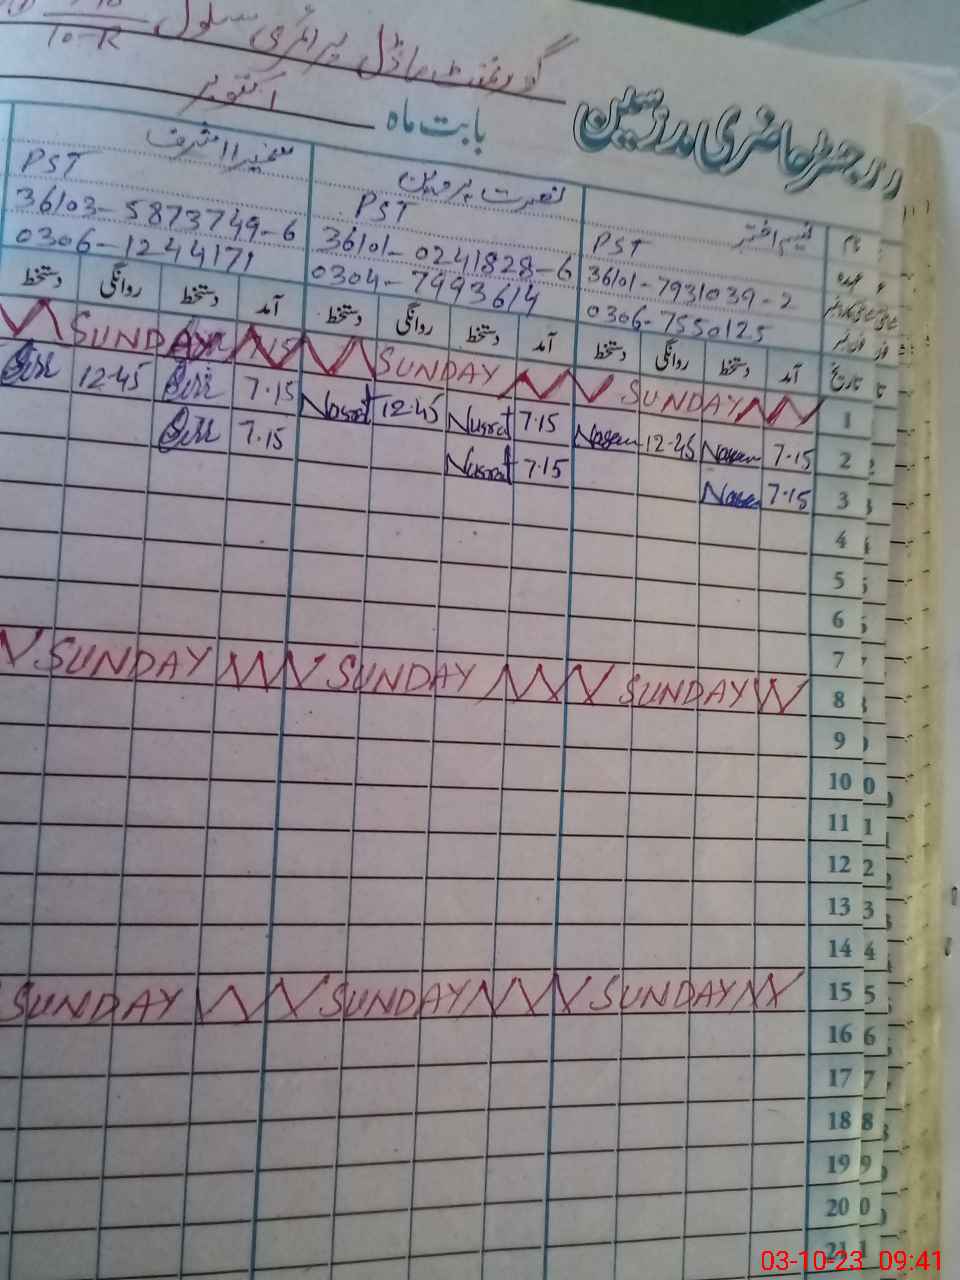 گورنمنٹ ماڈل پرائمری سکول 10-R
رجسٹر حاضری مدرسین
بابت ماہ اکتوبر
نام نسیم اختر نصرت پروین
عہدہ PST PST PST
36101-7931039-2 36101-0241828-6 36103-5873749-6
0306-7550125 0304-7993614 0306-1244171
تاریخ آمد دستخط روانگی دستخط آمد دستخط روانگی دستخط آمد دستخط روانگی دستخط
1 SUNDAY SUNDAY SUNDAY
2 7.15 Naseem 12.45 Naseem 7.15 Nusrat 12.45 Nusrat 7.15 12.45
3 7.15 Naseem 7.15 Nusrat 7.15
4
5
6
7
8 SUNDAY SUNDAY SUNDAY
9
10
11
12
13
14
15 SUNDAY SUNDAY SUNDAY
16
17
18
19
20
21
03-10-23 09:41